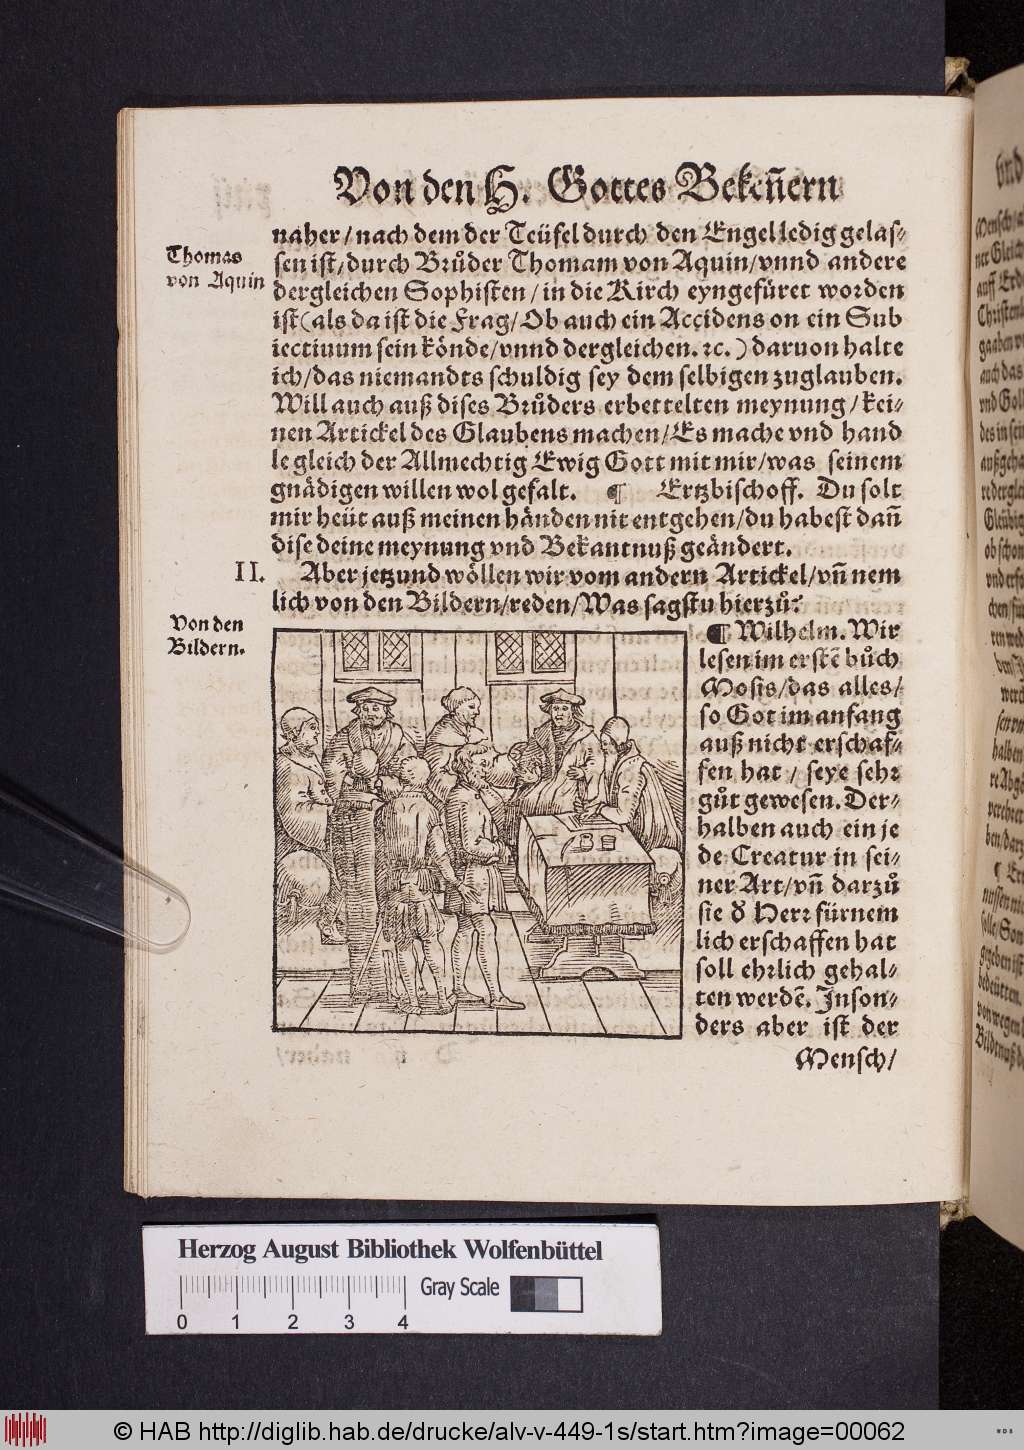 Von den H. Gottes Bekeñern
naher/nach dem der Teüfel durch den Engel ledig gelas⸗
Thomas
von Aquin
sen ist/durch Brůder Thomam von Aquin/vnnd andere
dergleichen Sophisten/in die Kirch eyngefüret worden
ist(als da ist die Frag/Ob auch ein Accidens on ein Sub
iectiuum sein könde/vnnd dergleichen. ꝛc.) daruon halte
ich/das niemandts schuldig sey dem selbigen zuglauben.
Will auch auß dises Brůders erbettelten meynung/kei⸗
nen Artickel des Glaubens machen/Es mache vnd hand
le gleich der Allmechtig Ewig Gott mit mir/was seinem
gnädigen willen wol gefalt. ¶ Ertzbischoff. Du solt
mir heüt auß meinen händen nit entgehen/du habest dañ
dise deine meynung vnd Bekantnuß geändert.
II.
Aber jetzund wöllen wir vom andern Artickel/vñ nem
lich von den Bildern/reden/Was sagstu hierzů?
Von den
Bildern.
¶ Wilhelm. Wir
lesen im erstē bůch
Mosis/das alles/
so Got im anfang
auß nicht erschaf⸗
fen hat / seye sehr
gůt gewesen. Der⸗
halben auch ein je
de Creatur in sei⸗
ner Art/vñ darzů
sie d̕ Herr fürnem
lich erschaffen hat
soll ehrlich gehal⸗
ten werdē. Inson⸗
ders aber ist der
Mensch/
Herzog August Bibliothek Wolfenbüttel
Gray Scale
0 1 2 3 4
© HAB http://diglib.hab.de/drucke/alv-v-449-1s/start.htm?image=00062